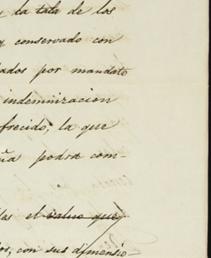 y la tala de los
conservado con
ados por mandato
indemnizacion
frecido, la que
ña podrá com-
las el value que
os, con sus dimensio